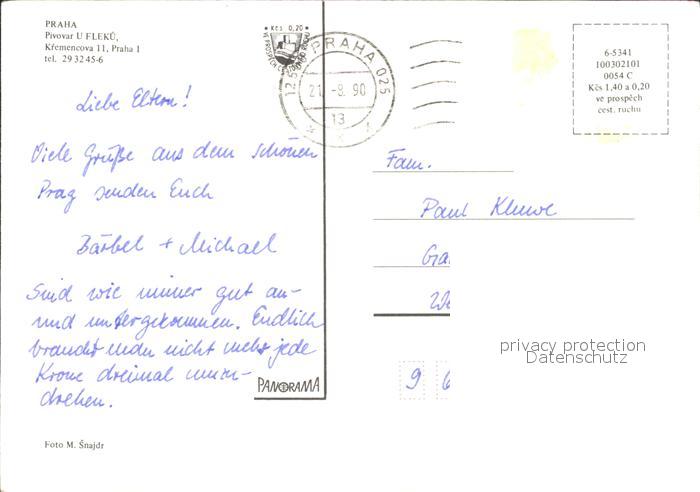 PRAHA
Pivovar U FLEKŮ,
Křemencova 11, Praha 1
tel. 29 32 45-6
Liebe Eltern!
Viele Grüße aus dem schönen
Prag senden Euch
Bärbel + Michael
Sind wie immer gut an-
und untergekommen. Endlich
braucht man nicht mehr jede
Krone dreimal umzu-
drehen.
Foto M. Šnajdr
PANORAMA
Kčs 0,20
PRAHA 025
21.-8.90
13
6-5341
100302101
0054 C
Kčs 1,40 a 0,20
ve prospěch
cest. ruchu
Fam.
Paul
Ga
9 6
privacy protection
Datenschutz